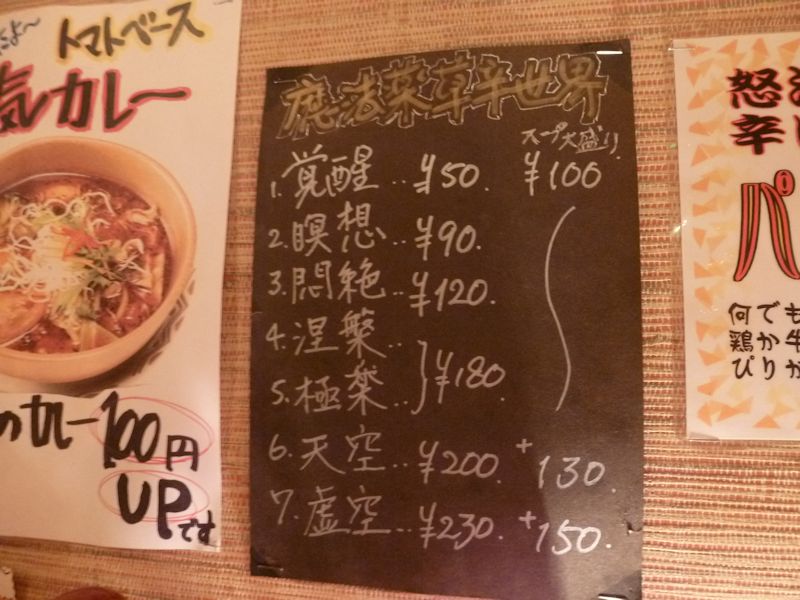 だよ〜
トマトベース
カレー
のカレー100円
UPです
魔法薬草辛世界
スープ大盛り
1.覚醒‥¥50. ¥100
2.瞑想‥¥90.
3.悶絶‥¥120.
4.涅槃‥
5.極楽‥
}¥180.
6.天空‥¥200. +130.
7.虚空‥¥230. +150.
怒
辛
パ
何でも
鶏か牛
ぴりが